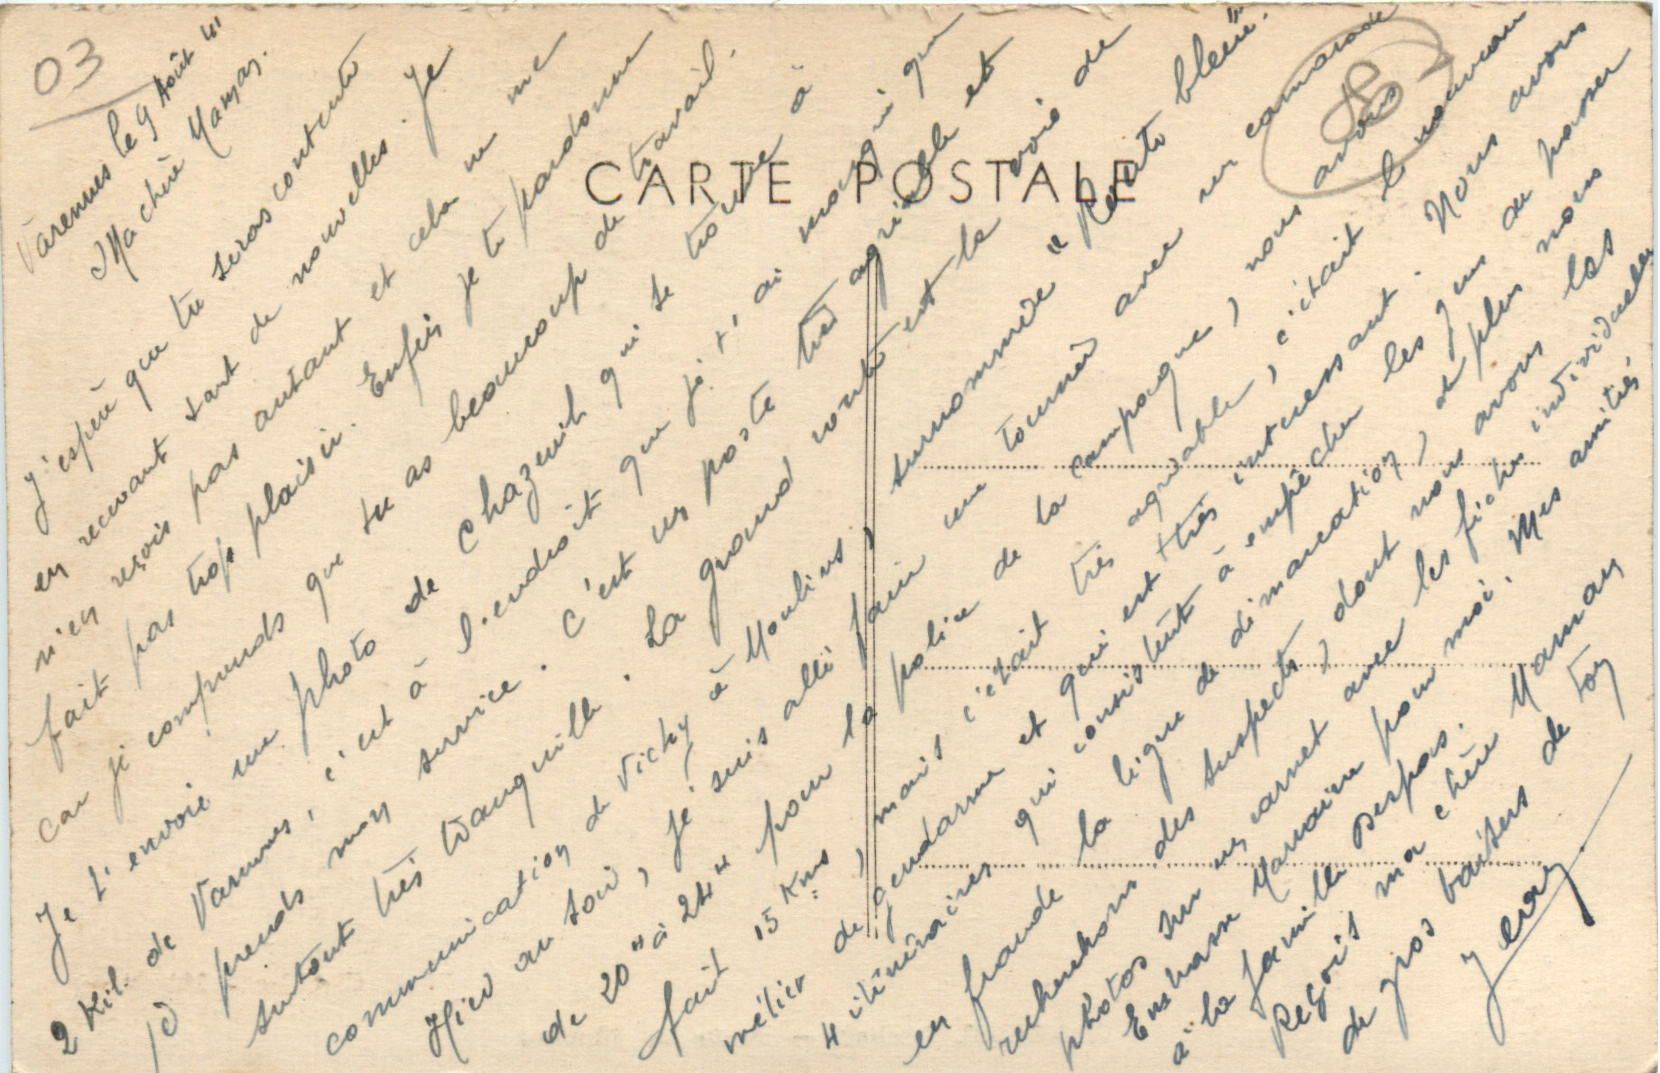 03
CARTE POSTALE
Varennes le 9 Août 41
Ma chère Maman.
J'espère que tu seras contente
en recevant tant de nouvelles. Je
n'en reçois pas autant et cela ne me
fait pas trop plaisir. Enfin je te pardonne
car je comprends que tu as beaucoup de travail.
Je t'envoie une photo de Chazeuil qui se trouve à
2 Kil. de Varennes, c'est à l'endroit que je t'ai marqué que
je prends mon service. C'est un poste très agréable et
surtout très tranquille. La grand route est la voie de
communication de Vichy à Moulins, surnommée "Route bleue".
Hier au soir, je suis allé faire une tournée avec un camarade
de 20H à 24H pour la police de la campagne, nous avons
fait 15 Kms, mais c'était très agréable, c'était le nouveau
métier de gendarme et qui est très intéressant. Nous avons
4 itinéraires qui consistent à empêcher les gens de passer
en fraude la ligne de démarcation, de plus nous
recherchons des suspects, dont nous avons les
photos sur un carnet avec les fiches individuelles
Embrasse Marraine pour moi. Mes amitiés
à la famille Despas.
Reçois ma chère Maman
de gros baisers de ton
Jean